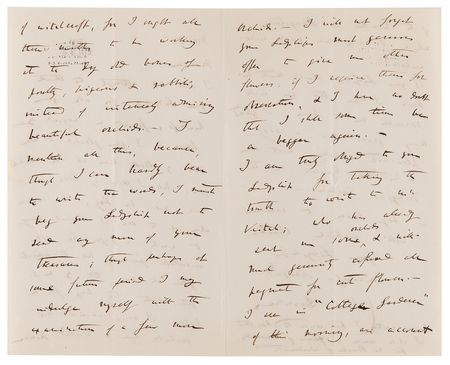 of witchcraft, for I ought all
these months to be working
at to dry old bones of
poultry, pigeons & rabbits,
instead of intensely admiring
beautiful orchids. — I
mention all this, because,
though I can hardly bear
to write the words, I must
beg your Ladyship not to
send any more of your
treasures; though perhaps at
some future period I may
indulge myself with the
examination of a few more
Orchids. — I will not forget
your Ladyship's most generous
offer to give me other
flowers, if I require them for
observation, & I have no doubt
that I shall some time be
a beggar again. —
I am truly obliged to your
Ladyship for taking the
trouble to write to Mr
Veitch; who has already
sent me some orchids, & with
much generosity
request for cut flowers. —
I see in "Cottage Gardener"
of this morning, an account